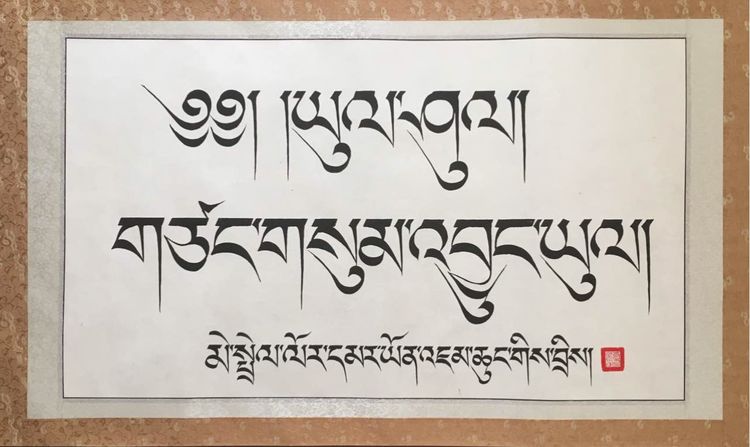 ༄༅། །ཡུལ་ཤུལ།།
གཙང་གསུམ་འབྱུང་ཡུལ།
མེ་སྤྲེལ་ལོར་དམར་ཡོན་འཇམ་ཆུང་གིས་བྲིས།